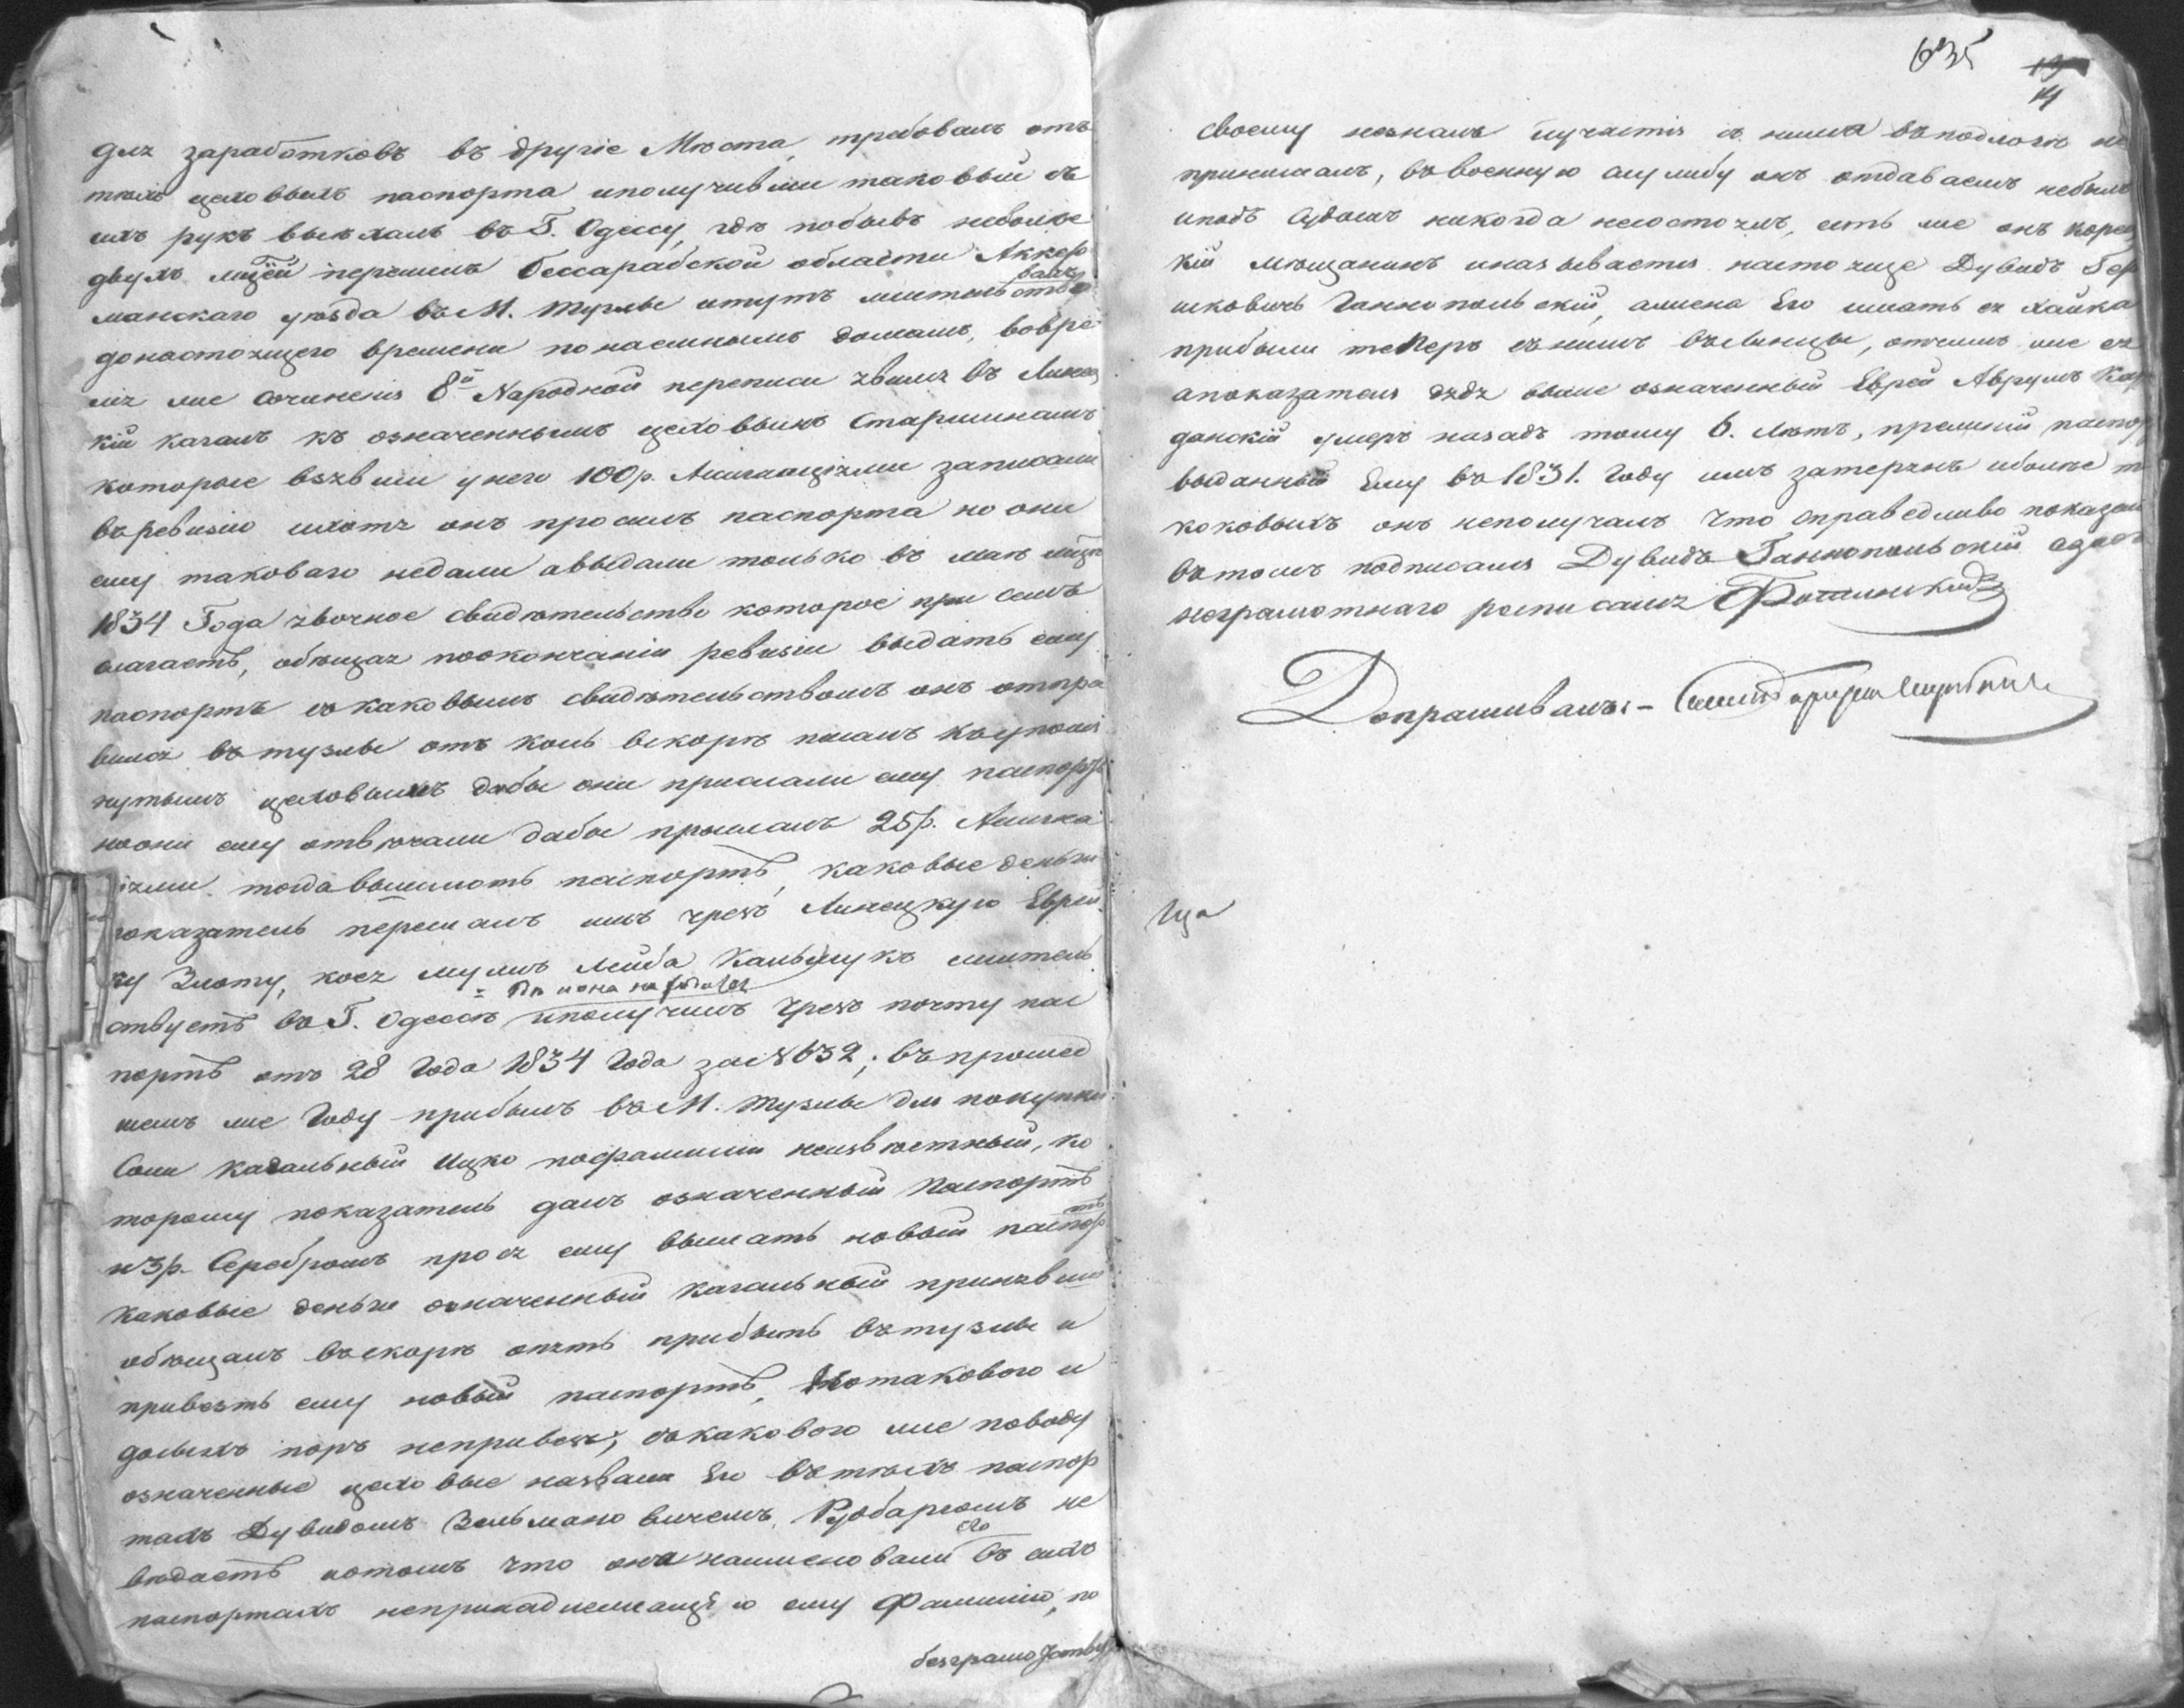 для заработковъ въ другіе Мѣста, требовалъ отъ
тѣхъ цеховыхъ паспорта иполучивши таковый съ
ихъ рукъ выѣхалъ въ Г. Одессу, гдѣ побывъ неболѣе
двухъ месяцей перешелъ Бессарабской области Аккер
манскаго уѣзда въ М. Тузлы итутъ жительство
валъ
донастоящего времени понаемнымъ домамъ, вовре
мя же сочиненія 8й Народной переписи явился въ Линец
кій кагалъ къ означеннымъ цеховымъ Старшинамъ
которые взявши унего 100р. Ассигнаціями записали
въревизію ихотя онъ просилъ паспорта но они
ему таковаго недали авыдали только въ маѣ мцѣ
1834 Года явочное свидѣтельство которое при семъ
слагаетъ, обѣщая поокончаніи ревизіи выдать ему
паспортъ съкаковымъ свидѣтельствомъ онъ отпра
вился въ тузлы отъ коль вскорѣ писалъ къупомя
нутымъ цеховымъ дабы они прислали ему паспортъ
ноони ему отвѣчали дабы прислалъ 25р. Ассигна
ціями тогдавышлютъ паспортъ, каковые деньги
показатель переслалъ имъ чрезъ Линецкую Еврей
ку Злоту, коея мужъ Лейба Кальбчукъ житель
гдѣ иона находится
ствуетъ въ Г. Одессѣ иполучилъ чрезъ почту пас
портъ отъ 28 Года 1834 Года за № 632; въпрошед
шемъ же Году прибылъ въ М. Тузлы для покупки
Соли кагальный Ицко пофамиліи неизвѣстный, ко
торому показатель далъ означенный Паспортъ
и 3р. Серебромъ прося ему выслать новый паспор
тъ
каковые деньги означенный кагальный принявши
обѣщалъ въскорѣ опять прибыть въ тузлы и
привезть ему новый паспортъ, нотаковаго и
досихъ поръ непривезъ, съкаковаго же поводу
означенные цеховые назвали Его вътѣхъ паспор
тахъ Дувидомъ Зельмановичемъ Рубаргомъ не
вѣдаетъ иотомъ что они наименовали его въ сихъ
паспортахъ непринадлежащею ему Фамиліею, по
безграмотству
635
13
14
своему незналъ иучастія съ ними въподлогѣ не
принималъ, въвоенную службу онъ отдаваемъ небылъ
иподъ Судомъ никогда несостоялъ, есть же онъ
кій мѣщанинъ иназывается настояще Дувидъ Бер
шковичъ Ганнопольскій, ажена Его имать ея хайка
прибыли теперь съними вълинцы, отчимъ же ея
апоказателя дядя выше означенный Еврей Аврумъ
данскій умеръ назадъ тому 6. лѣтъ, прежній паспор
выданный Ему въ 1831. Году имъ затерянъ иболѣе
коковыхъ онъ неполучалъ что справедливо показалъ
вътомъ подписался Дувидъ Ганнопольскій азаего
неграмотнаго росписался
Допрашивалъ:-